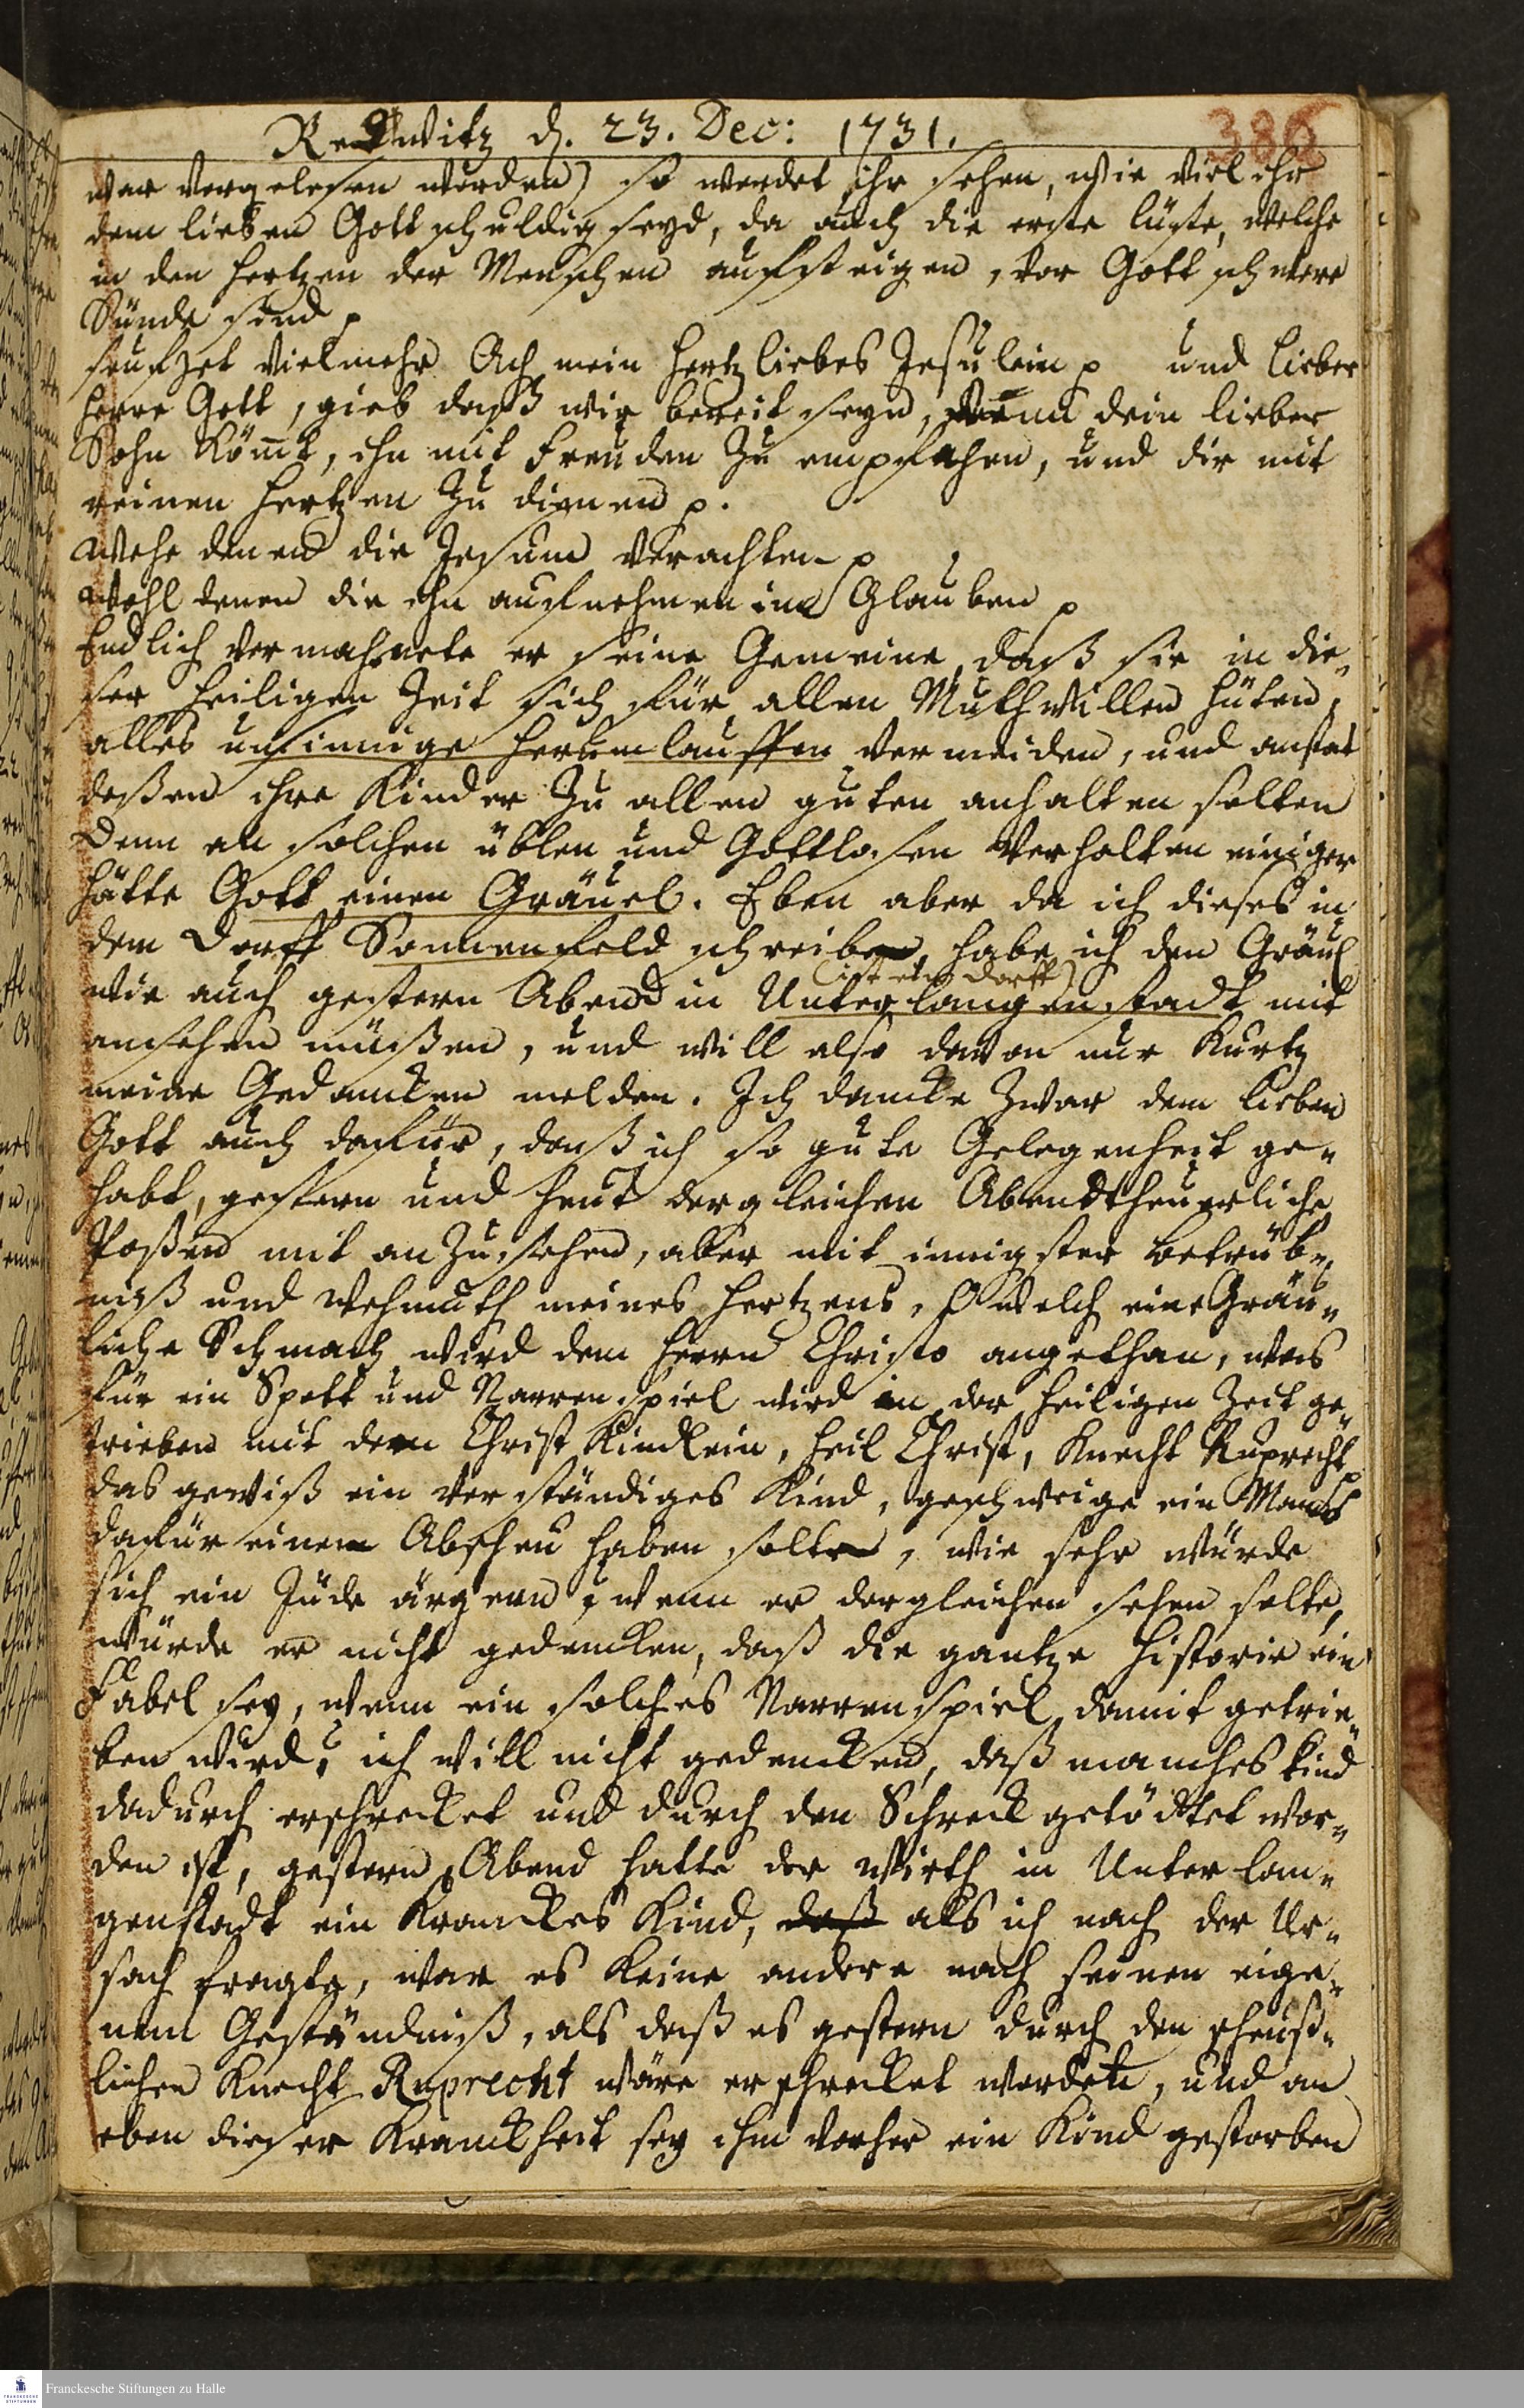 Redwitz d. 23. Dec: 1731.
386
war vorgelesen worden) so werdet ihr sehen, wie viel ihr
dem lieben Gott schuldig seyd, da auch die erste lüste, welche
in den Hertzen der Menschen aufsteigen, vor Gott schwere
Sünde sind p
seufzet vielmehr Ach mein hertzliebes Jesulein p und lieber
Herre Gott, gieb daß wir bereit seyn, wenn dein lieber
Sohn kömt, ihn mit Freuden zu empfahen, und dir mit
reinen Hertzen zu dienen p.
Wehe denen die Jesum verachten p
wohl denen die ihn aufnehmen im Glauben p
Endlich vermahnete er seine Gemeine, daß sie in die-
ser heiligen Zeit sich für allen Muthwillen hüten,
alles unsinnige herumlauffen vermeiden, und anstat
deßen ihre Kinder zu allen guten anhalten solten
Denn an solchen üblen und Gottlosen Verhalten einiger
hätte Gott einen Gräuel. Eben aber da ich dieses in
dem Dorff Sonnenfeld schreibe, habe ich den Gräul
(ist ein Dorff)
wie auch gestern Abend in Unterlangenstadt mit
ansehen müßen, und will also davon nur kurtz
meine Gedancken melden. Ich dancke zwar dem lieben
Gott auch dafür, daß ich so gute Gelegenheit ge-
habt, gestern und heut dergleichen Abendtheuerliche
Poßen mit anzusehen, aber mit innigster betrüb-
niß und Wehmuth meines Hertzens, O welch eine Gräu-
liche Schmach wird dem Herrn Christo angethan, was
für ein Spott und Narrenspiel wird in der heiligen Zeit ge-
trieben mit dem Christ Kindlein, heil Christ, Knecht Ruprecht p
das gewiß ein verständiges Kind, geschweige ein Mensch
dafür einen Abscheu haben solte, wie sehr würde
sich ein Jude ärgern, wenn er dergleichen sehen solte,
würde er nicht gedencken, daß die gantze Historie ein
Fabel sey, wenn ein solches Narrenspiel damit getrie-
ben wird, ich will nicht gedencken, daß manches Kind
dadurch erschrecket und durch den Schreck getödtet wor-
den ist, gestern Abend hatte der Wirth in Unterlan-
genstadt ein Kranckes Kind, daß als ich nach der Ur-
sach fragte, war es keine andere nach seinen eige-
nem Geständniß, als daß es gestern durch den scheuß-
lichen Knecht Ruprecht wäre erschrecket worden, und an
eben dieser Kranckheit sey ihm vorher ein Kind gestorben
Franckesche Stiftungen zu Halle